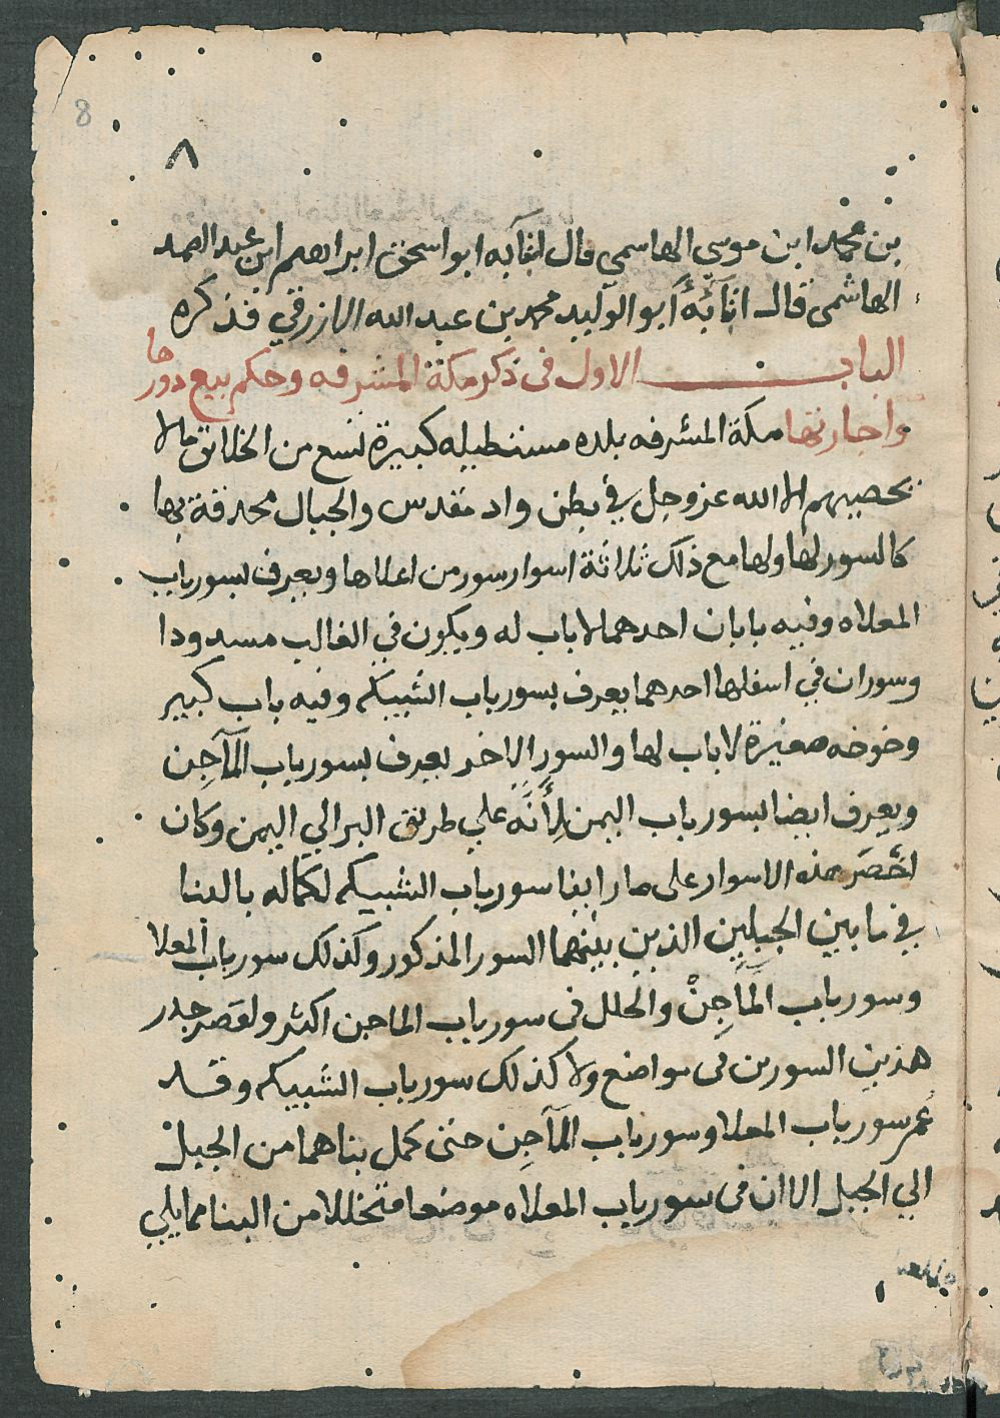 8
٨
بن محمد ابن موسي الهاسمي قال انبآبه ابو اسحق ابراهيم ابن عبد الصمد
الهاشمى قال انبآبهُ ابو الوليد محمد بن عبد الله الازرقي فذكره
الباب الاول فى ذكر مكة المشرفه وحكم بيع دورها
واجارتها مكة المشرفه بلده مستطيله كبيرة تسع من الخلائق مالا
يحصيهم الا الله عز وجل في بطن واد مقدس والجبال محدقة بها
كالسور لها ولها مع ذلك ثلاثة اسوار سور من اعلاها ويعرف بسور باب
المعلاه وفيه بابان احدهما لا باب له ويكون في الغالب مسدودا
وسوران في اسفلها احدهما يعرف بسور باب الشبيكه وفيه باب كبير
وخوخه صغيرة لا باب لها والسور الاخر يعرف بسور باب المآجِن
ويعرف ايضا بسور باب اليمن لِأَنَّهُ علي طريق البر الي اليمن وكان
اخصَر هذه الاسوار على ما راينا سور باب الشبيكه لكماله بالبنا
في ما بين الجبلين الذين بينهما السور المذكور وكذلك سور باب المعلا
وسور باب المآجِنْ والخلل فى سور باب الماجن اكثر ولقصر جدر
هذين السورين فى مواضع ولا كذلك سور باب الشبيكه وقد
عُمر سور باب المعلا وسور باب المآجِن حتى كمل بناهما من الجبل
الي الجبل الا ان فى سور باب المعلاه موضعا متخللا من البنا مما يلي